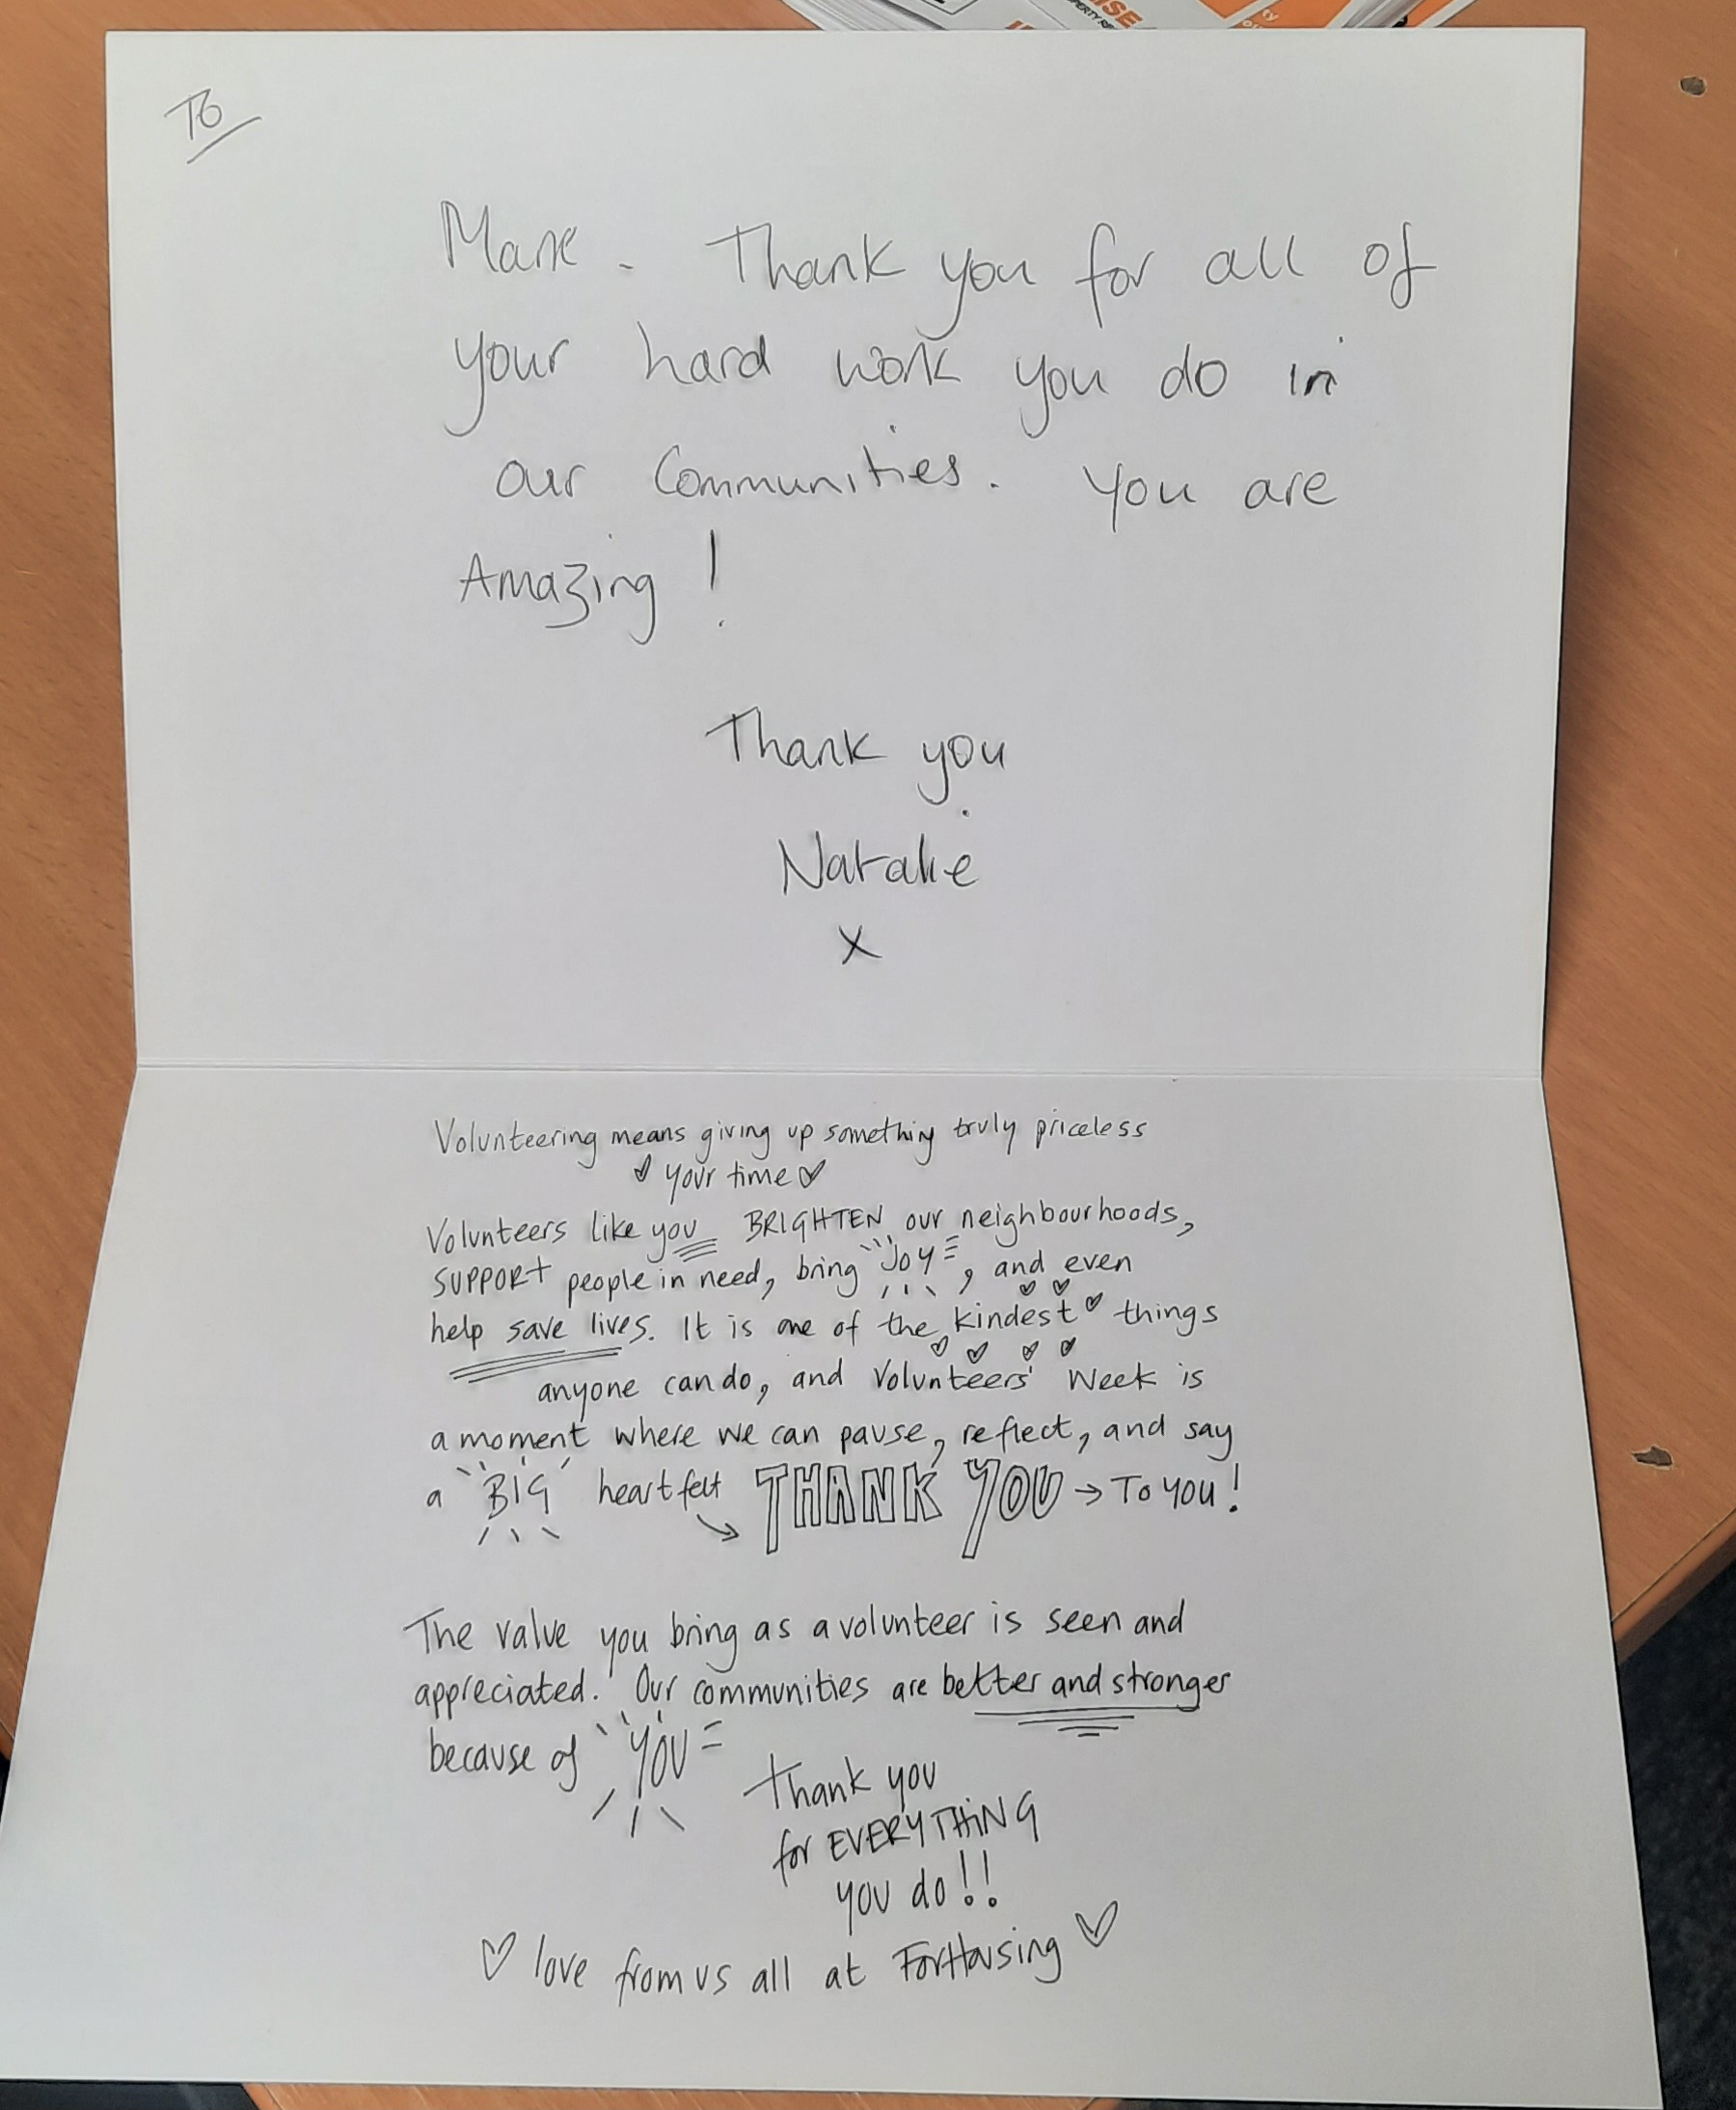 To
Mark - Thank you for all of
your hard work you do in
our Communities. You are
Amazing!
Thank you
Natalie
x
Volunteering means giving up something truly priceless
♡ your time ♡
Volunteers like you BRIGHTEN our neighbourhoods,
SUPPORT people in need, bring JOY, and even
help save lives. It is one of the kindest things
anyone can do, and Volunteers' Week is
a moment where we can pause, reflect, and say
a BIG heartfelt THANK YOU → To YOU!
The value you bring as a volunteer is seen and
appreciated. Our communities are better and stronger
because of YOU
Thank you
for EVERYTHING
you do!!
♡ love from us all at ForHousing ♡